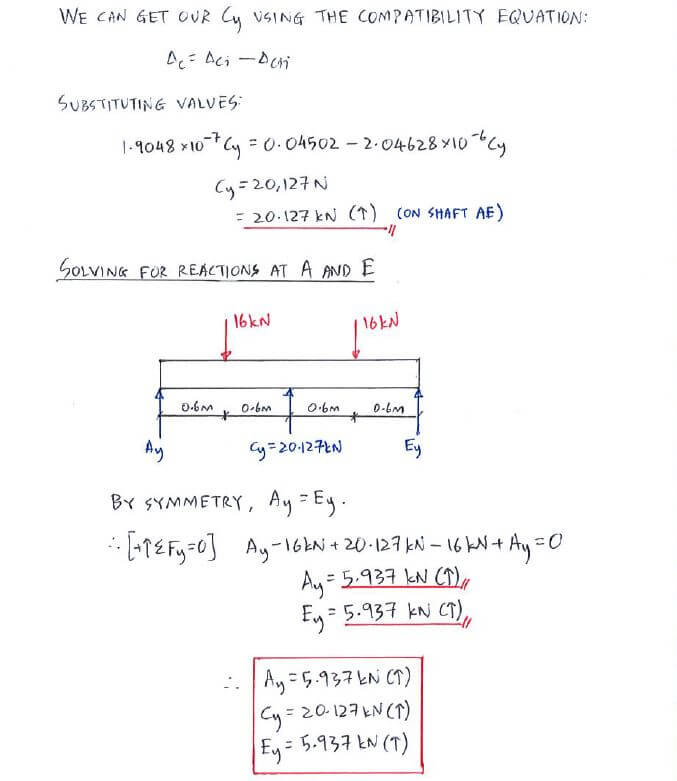 WE CAN GET OUR Cy USING THE COMPATIBILITY EQUATION:
Δc = Δci − Δcii
SUBSTITUTING VALUES:
1.9048 ×10⁻⁷ Cy = 0.04502 − 2.04628 ×10⁻⁶ Cy
Cy = 20,127 N
= 20.127 kN (↑) (ON SHAFT AE)
SOLVING FOR REACTIONS AT A AND E
16kN 16kN
0.6m 0.6m 0.6m 0.6m
Ay Cy = 20.127kN Ey
BY SYMMETRY, Ay = Ey.
∴ [+↑ΣFy=0] Ay − 16kN + 20.127kN − 16kN + Ay = 0
Ay = 5.937 kN (↑)
Ey = 5.937 kN (↑)
∴ Ay = 5.937 kN (↑)
Cy = 20.127 kN (↑)
Ey = 5.937 kN (↑)